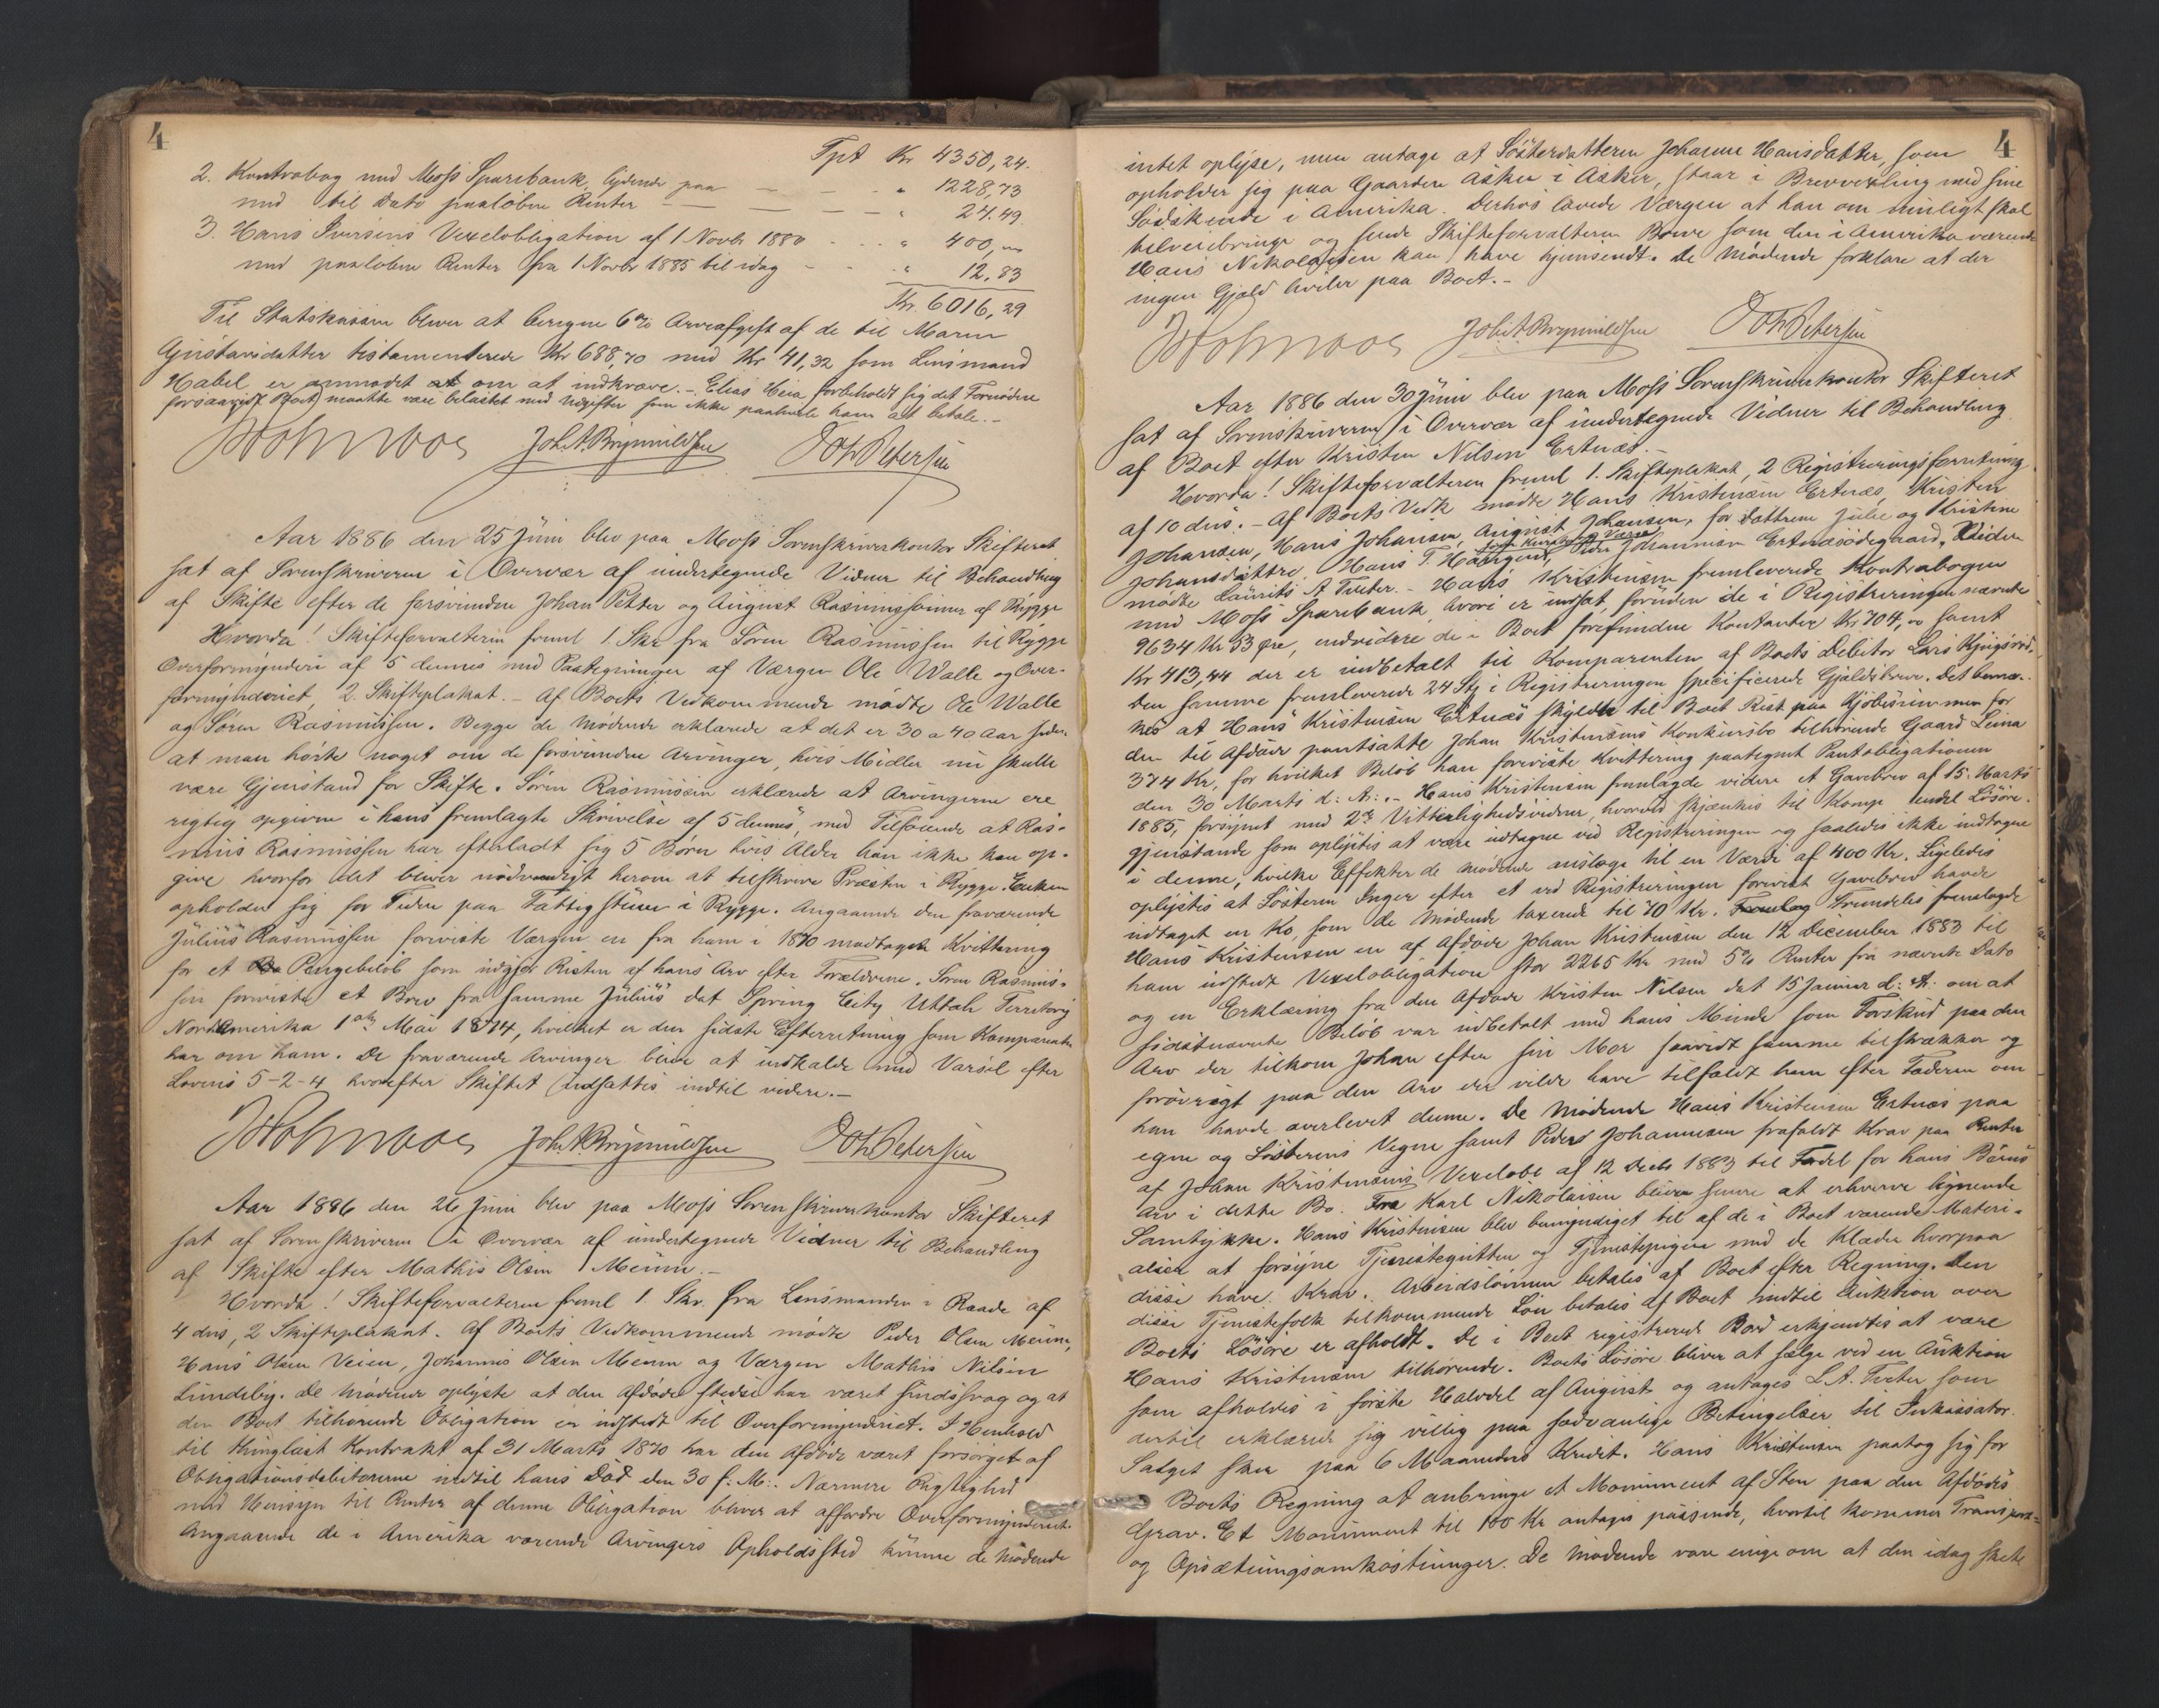 4
Tpt Kr 4350,24.
2. Kontrabog med Moss Sparebank, lydende paa — — — " 1228,73
med til Dato paaløbne Renter — — — — " 24.49
3. Hans Iversens Vexelobligation af 1 Novbr 1880 - - - " 400,00
med paaløbne Renter fra 1 Novbr 1885 til idag - - - " 12,83
Kr. 6016,29
Til Statskassen bliver at beregne 6% Arveafgift af de til Maren
Gustavsdatter testamenterede Kr 688,70 med Kr 41,32 som Lensmand
Habel er anmodet at om at indkræve. - Elias Heia forbeholdt sig det Fornødne
forsaavidt Boet maatte være belastet med Udgifter som ikke paahvile ham at betale. -
Joh. A. Brynildsen O Th Petersen
Aar 1886 den 25 Juni blev paa Moss Sorenskriverkontor Skifteret
sat af Sorenskriveren i Overvær af undertegnede Vidner til Behandling
af Skifte efter de forsvundne Johan Petter og August Rasmussønner af Rygge
Hvorda! Skifteforvalteren freml 1. Skr fra Søren Rasmussen til Rygge
Overformynderi af 5 dennes med Paategninger af Værgen Ole Walle og Over-
formynderiet, 2. Skifteplakat. - Af Boets Vedkommende mødte Ole Walle
og Søren Rasmussen. Begge de Mødende erklærede at det er 30 a 40 Aar siden
at man hørte noget om de forsvundne Arvinger, hvis Midler nu skulle
være Gjenstand for Skifte. Søren Rasmussen erklærede at Arvingerne ere
rigtig opgivne i hans fremlagte Skrivelse af 5 dennes, med Tilføiende at Ras-
mus Rasmussen har efterladt sig 5 Børn hvis Alder han ikke kan op-
give hvorfor det bliver nødvendigt herom at tilskrive Præsten i Rygge. Enken
opholder sig for Tiden paa Fattigstuen i Rygge. Angaaende den fraværende
Julius Rasmussen foreviste Værgen en fra ham i 1870 modtagen Kvittering
for et Pengebeløb som udgjør Resten af hans Arv efter Forældrene. Søren Rasmus-
sen foreviste et Brev fra samme Julius dat Spring City Uttah Territory
NordAmerika 1ste Mai 1874, hvilket er den sidste Efterretning som Komparenten
har om ham. De fraværende Arvinger blive at indkalde med Varsel efter
Lovens 5-2-4 hvorefter Skiftet udsattes indtil videre. -
Joh. A. Brynildsen O Th Petersen
Aar 1896 den 26 Juni blev paa Moss Sorenskriverkontor Skifteret
sat af Sorenskriveren i Overvær af undertegnede Vidner til Behandling
af Skifte efter Mathis Olsen Meum. -
Hvorda! Skifteforvalteren freml 1. Skr. fra Lensmanden i Raade af
4 dns, 2 Skifteplakat. Af Boets Vedkommende mødte Peder Olsen Meum,
Hans Olsen Veien, Johannes Olsen Meum og Værgen Mathis Nilsen
Lundeby. De Mødende oplyste at den Afdøde stedse har været sindssvag og at
den Boet tilhørende Obligation er udstedt til Overformynderiet. I Henhold
til thinglæst Kontrakt af 31 Marts 1870 har den Afdøde været forsørget af
Obligationsdebitorerne indtil hans Død den 30 f: M:. Nærmere Rigtighed
med Hensyn til Renter af denne Obligation bliver at affordre Overformynderiet.
Angaaende de i Amerika værende Arvingers Opholdssted kunne de Mødende
4
intet oplyse, men antage at Søsterdatteren Johanne Hansdatter, som
opholder sig paa Gaarden Asker i Asker, staar i Brevvexling med sine
Sødskende i Amerika. Derhos lovede Værgen at han om muligt skal
tilveiebringe og sende Skifteforvalteren Breve som den i Amerika værende
Hans Nikolaisen kan have hjemsendt. De Mødende forklare at der
ingen Gjæld hviler paa Boet. -
Joh. A. Brynildsen O Th Petersen
Aar 1886 den 30 Juni blev paa Moss Sorenskriverkontor Skifteret
sat af Sorenskriveren i Overvær af undertegnede Vidner til Behandling
af Boet efter Kristen Nilsen Ertnæs. -
Hvorda! Skifteforvalteren freml 1. Skifteplakat, 2 Registreringsforretning
af 10 dns. - Af Boets Vedk mødte Hans Kristensen Ertnæs, Kristen
Johansen, Hans Johansen, August Johansen, for Døttrene Julie og Kristine
Johansdøttre, Hans T. som Kurator og Værge, Peder Johannesen Ertnæsødegaard, Desuden
mødte Laurits A Tveter. - Hans Kristensen fremleverede Kontrabogen
med Moss Sparebank, hvori er indsat, foruden de i Registreringen nævnte
9634 Kr 53 Øre, endvidere de i Boet forefundne Kontanter Kr 704,00 samt
Kr 413,44 der er indbetalt til Komparenten af Boets Debitor Lars
den samme fremleverede 24 Stk i Registreringen specificerede Gjældsbreve. Det bemær-
kes at Hans Kristensen Ertnæs skylder til Boet Rest paa Kjøbesummen for
den til Afdøde pantsatte Johan Kristensens Konkursbo tilhørende Gaard Leina
374 Kr, for hvilket Beløb han foreviste Kvittering paategnet Pantobligationen
den 30 Marts d: A:. - Hans Kristensen fremlagde videre et Gavebrev af 15 Marts
1885, forsynet med 2de Vitterlighedsvidner, hvorved skjænkes til Komp endel Løsøre-
gjenstande som oplystes at være udtagne ved Registreringen og saaledes ikke indtagne
i denne, hvilke Effekter de Mødende anslaa til en Værdi af 400 Kr. Ligeledes
oplystes at Søsteren Inger efter et ved Registreringen forevist Gavebrev havde
udtaget en Ko, som de Mødende taxerede til 70 Kr. Fremdeles fremlagde
Hans Kristensen en af Afdøde Johan Kristensen den 12 December 1883 til
ham udstedt Vexelobligation stor 2265 Kr med 5% Renter fra nævnte Dato
og en Erklæring fra den Afdøde Kristen Nilsen dat 15 Januar d: A: om at
sidstnævnte Beløb var udbetalt med hans Minde som Forskud paa den
Arv der tilkom Johan efter sin Mor saavidt samme tilstrækker og
forøvrigt paa den Arv der vilde have tilfaldt ham efter Faderen om
han havde overlevet denne. De Mødende Hans Kristensen Ertnæs paa
egne og Søsterens Vegne samt Peder Johannesen frafaldt Krav paa Renter
af Johan Kristensens Vexelobl af 12 Decbr 1883 til Fordel for hans Børns
Arv i dette Bo. Fra Karl Nikolaisen bliver senere at erhverve lignende
Samtykke. Hans Kristensen blev bemyndiget til af de i Boet værende Materi-
alier at forsyne Tjenestegutten og Tjenestepigen med de Klæder hvorpaa
disse have Krav. Arbeidslønnen betales af Boet efter Regning. Den
disse Tjenestefolk tilkommende Løn betales af Boet indtil Auktion over
Boets Løsøre er afholdt. De i Boet registrerede Bord erkjendtes at være
Hans Kristensen tilhørende. Boets Løsøre bliver at sælge ved en Auktion
som afholdes i første Halvdel af August og antages L.A. Tveter som
dertil erklærede sig villig paa sædvanlige Betingelser til Inkassator.
Salget sker paa 6 Maaneders Kredit. Hans Kristensen paatog sig for
Boets Regning at anbringe et Monument af Sten paa den Afdødes
Grav. Et Monument til 100 Kr antages passende, hvortil kommer Transport-
og Opsætningsomkostninger. De Mødende vare enige om at den idag skete